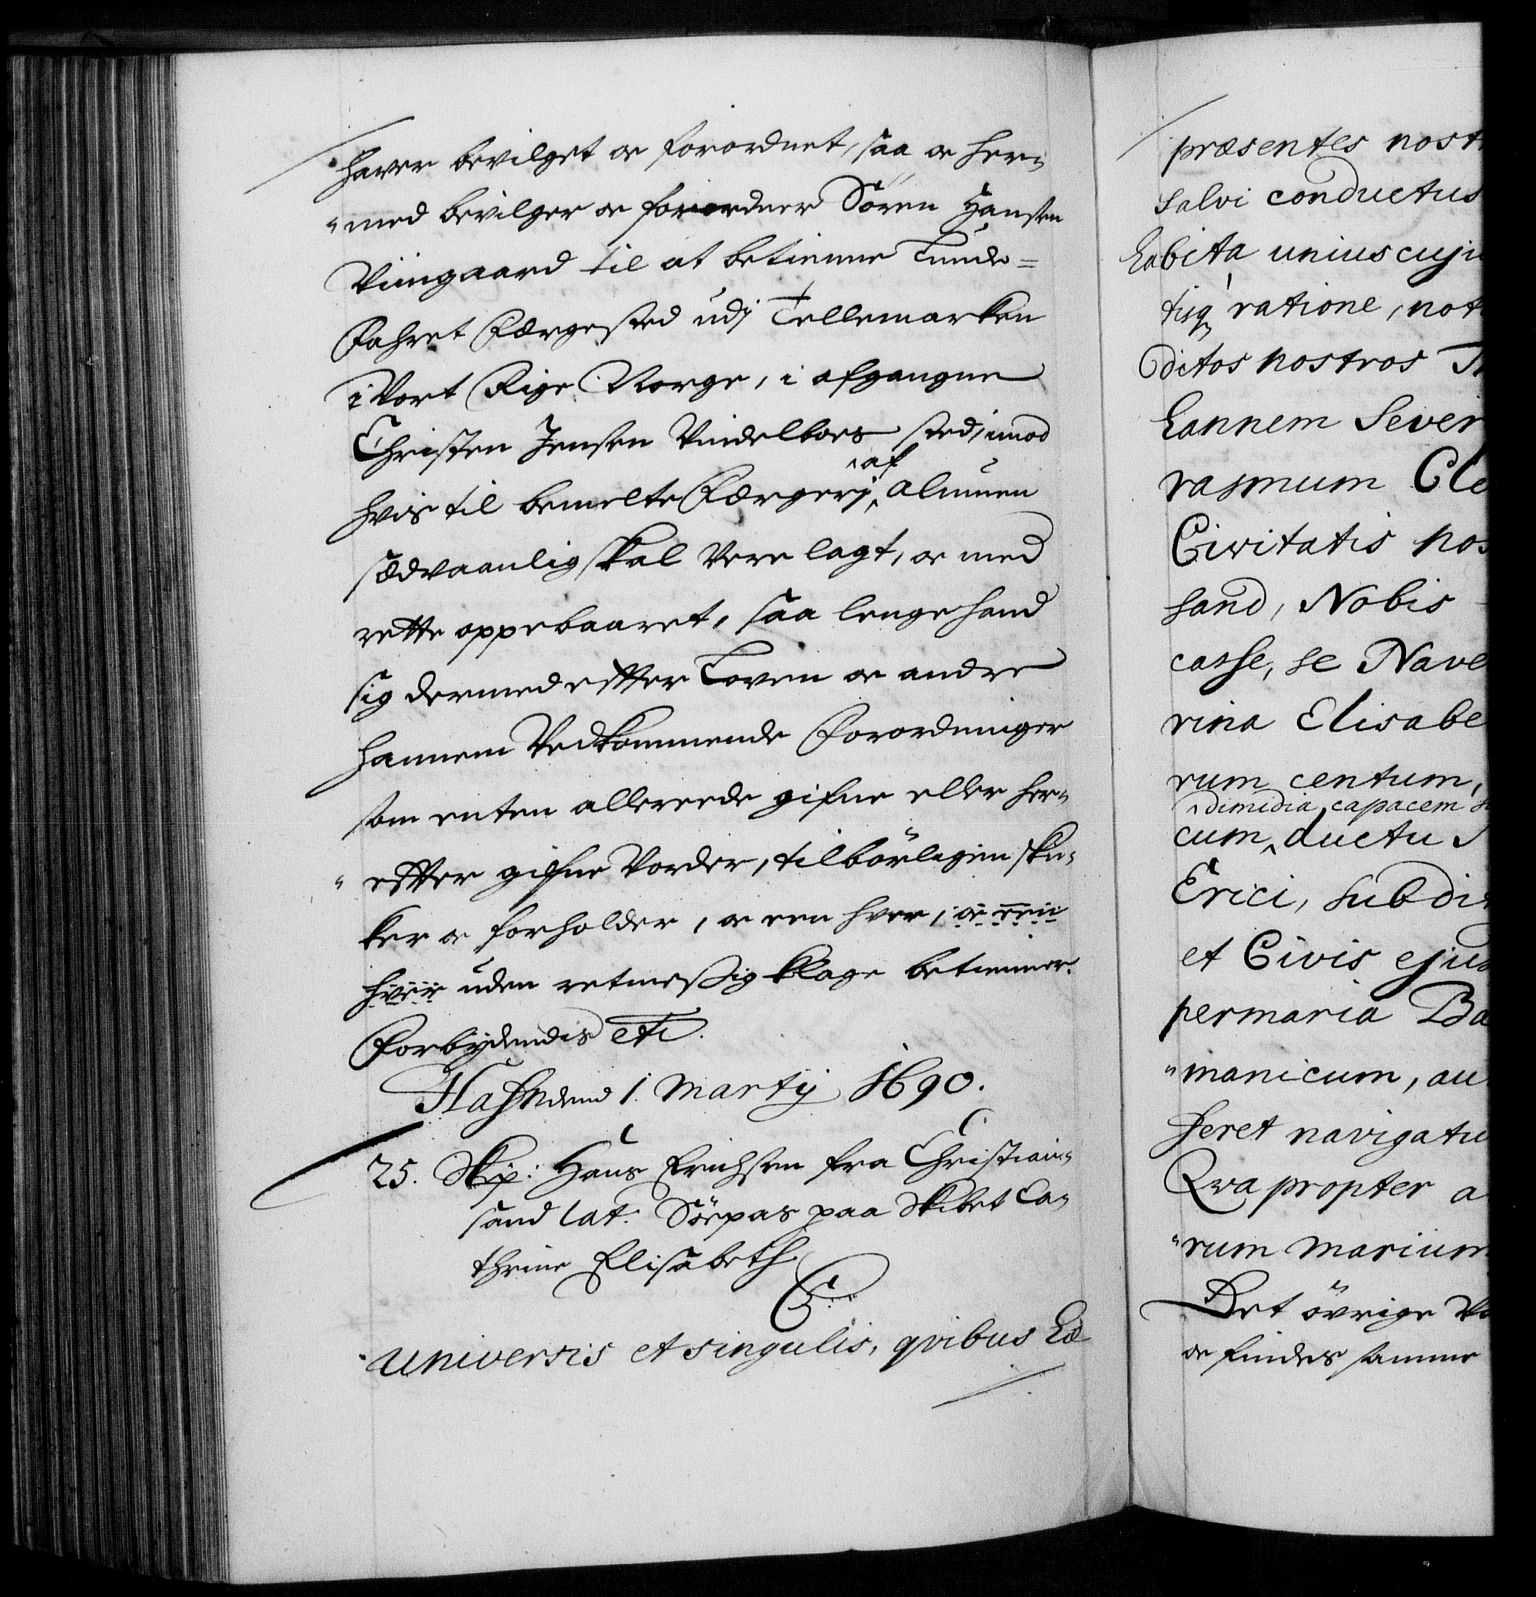 hafver bevilget oc forordnet, saa oc her¬
"med bevilger oc forordner Sören Hansen
Viingaard til at betienne Tunde=
Fahret Færgested udj Tellemarken
i Vort Rige Norge, i afgangne
Christen Jensen Vindelboes sted, imod
hvis til bemelte Færgerj, ^af almuen
sædvaanlig skal Vere lagt, oc med
rette oppebaaret, saa lenge hand
sig dermed efter Loven oc andre
hannem Vedkommende Forordninger
som enten allereede gifne eller her¬
" efter gifne Vorder, tilbörligen skic¬
ker oc forholder, oc een hver, oc een
hver uden retmessig Klage betienner.
Forbydendis etc.
Hafn dend 1. Martij 1690.
25. Skip: Hans Erichsen fra Christian¬
sand lat: Söepas paa Skibet Ca¬
thrine Elisabeth
C5.
Universis et singulis, qvibus hæ
præsentes nost
salvi conductus
habita uniuscuju
tisq ratione, not
ditos nostros
hannem Sever
rasmum Cle
Civitatis nos
sand, Nobis
casse, se Nave
rina Elisabe
rum centum,
^dimidia capacem
cum ^ ductu
Erici, subdi
et Civis ejus
per maria Ba
"manicum, au
seret navigatu
Qva propter a
"rum marium
Det övrige
oc findes samme